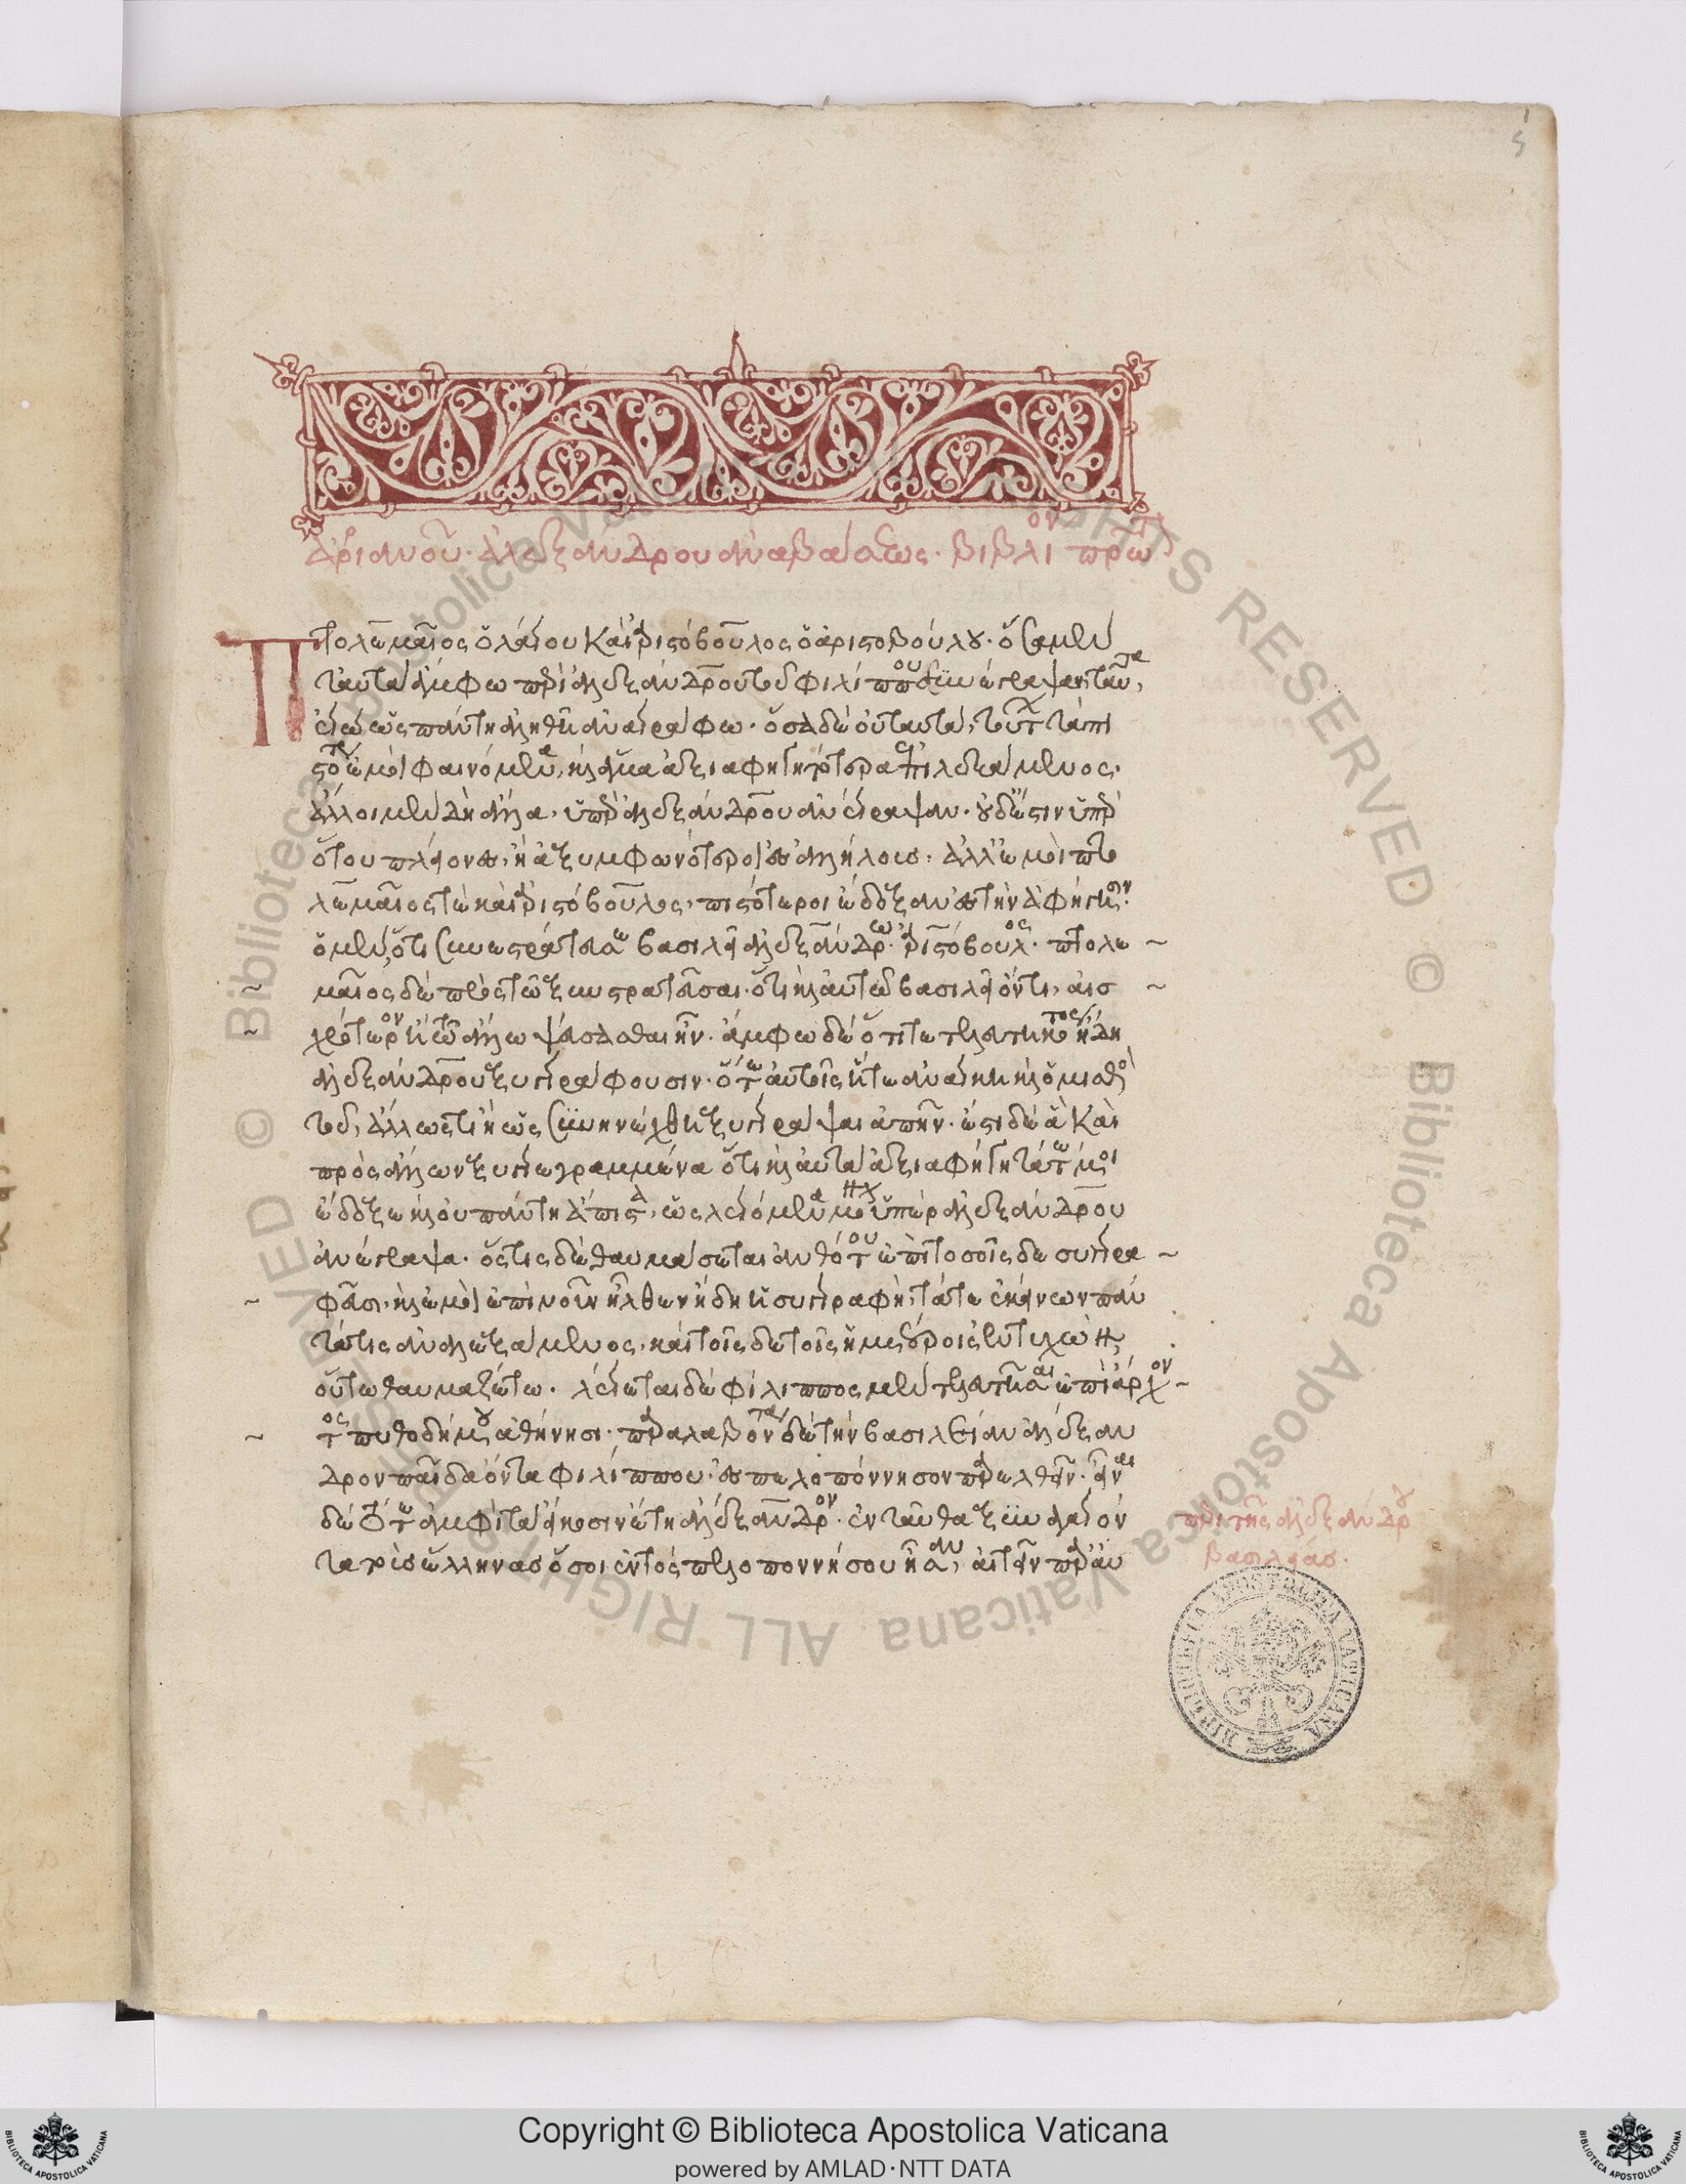 ἀρριανοῦ· ἀλεξάνδρου ἀναβάσεως· βιβλίον πρῶτ
Πτολεμαῖος ὁ λάγου καὶ ἀριστόβουλος ὁ ἀριστοβούλου· ὅσα μὲν
ταῦτα ἄμφω περὶ ἀλεξάνδρου τοῦ φιλίππου συνέγραψαν, ταῦτα
ἐγὼ ὡς πάντη ἀληθῆ ἀναγράφω· ὅσα δὲ οὐ ταυτά, τούτων τὰ πι
στότερα ἐμοὶ φαινόμενα, καὶ ἅμα ἀξιαφηγητότερα ἐπιλεξάμενος.
ἄλλοι μὲν δὴ ἄλλα ὑπὲρ ἀλεξάνδρου ἀνέγραψαν· οὐδ' ἔστιν ὑπὲρ
ὅτου πλείονες, ἢ ἀξυμφωνότεροι ἐς ἀλλήλους. ἀλλ' ἐμοὶ πτο
λεμαῖός τε καὶ ἀριστόβουλος, πιστότεροι ἔδοξαν ἐς τὴν ἀφήγησιν·
ὁ μὲν, ὅτι συνεστράτευσε βασιλεῖ ἀλεξάνδρω ἀριστόβουλος· πτολε
μαῖος δὲ πρὸς τῶ ξυστρατεῦσαι· ὅτι καὶ αὐτῶ βασιλεῖ ὄντι, αἰσ
χρότερον ἤ τω ἄλλω ψεύσασθαι ἦν· ἄμφω δὲ ὅτι τετελευτηκότος ἤδη
ἀλεξάνδρου ξυγγράφουσιν· ὅτε αὐτοῖς ἥ τε ἀνάγκη καὶ ὁ μισθὸς
τοῦ, ἄλλως τι ἢ ὡς συνηνέχθη ξυγγράψαι ἀπῆν. ἔστι δὲ ἃ καὶ
πρὸς ἄλλων ξυγγεγραμμένα ὅτι καὶ αὐτὰ ἀξιαφήγητά τέ μοι
ἔδοξε καὶ οὐ πάντη ἄπιστα, ὡς λεγόμενα μόνον ὑπὲρ ἀλεξάνδρου
ἀνέγραψα. ὅστις δὲ θαυμάσεται ἀνθ' ὅτου ἐπὶ τοσοῖσδε συγγρα
φεῦσι, καὶ ἐμοὶ ἐπὶ νοῦν ἦλθεν ἥδε ἡ συγγραφή, τά τε ἐκείνων πάν
τά τις ἀναλεξάμενος, καὶ τοῖσδε τοῖς ἡμετέροις ἐντυχὼν
οὕτω θαυμαζέτω. λέγεται δὲ φίλιππος μὲν τελευτῆσαι ἐπὶ ἄρχον
τος πυθοδήμου ἀθήνησι· παραλαβόντα δὲ τὴν βασιλείαν ἀλέξαν
δρον παῖδα ὄντα φιλίππου, ἐς πελοπόννησον παρελθεῖν· εἶναι
δὲ τότε ἀμφὶ τὰ εἴκοσιν ἔτη ἀλέξανδρον. ἐνταῦθα ξυναγαγόν
τα τοὺς ἕλληνας ὅσοι ἐντὸς πελοποννήσου ἦσαν, αἰτεῖν παρ' αὐ
περὶ τῆς ἀλεξάνδρου
βασιλείας.
BIBLIOTHECA APOSTOLICA VATICANA
© Biblioteca Apostolica Vaticana ALL RIGHTS RESERVED
Copyright © Biblioteca Apostolica Vaticana
powered by AMLAD·NTT DATA